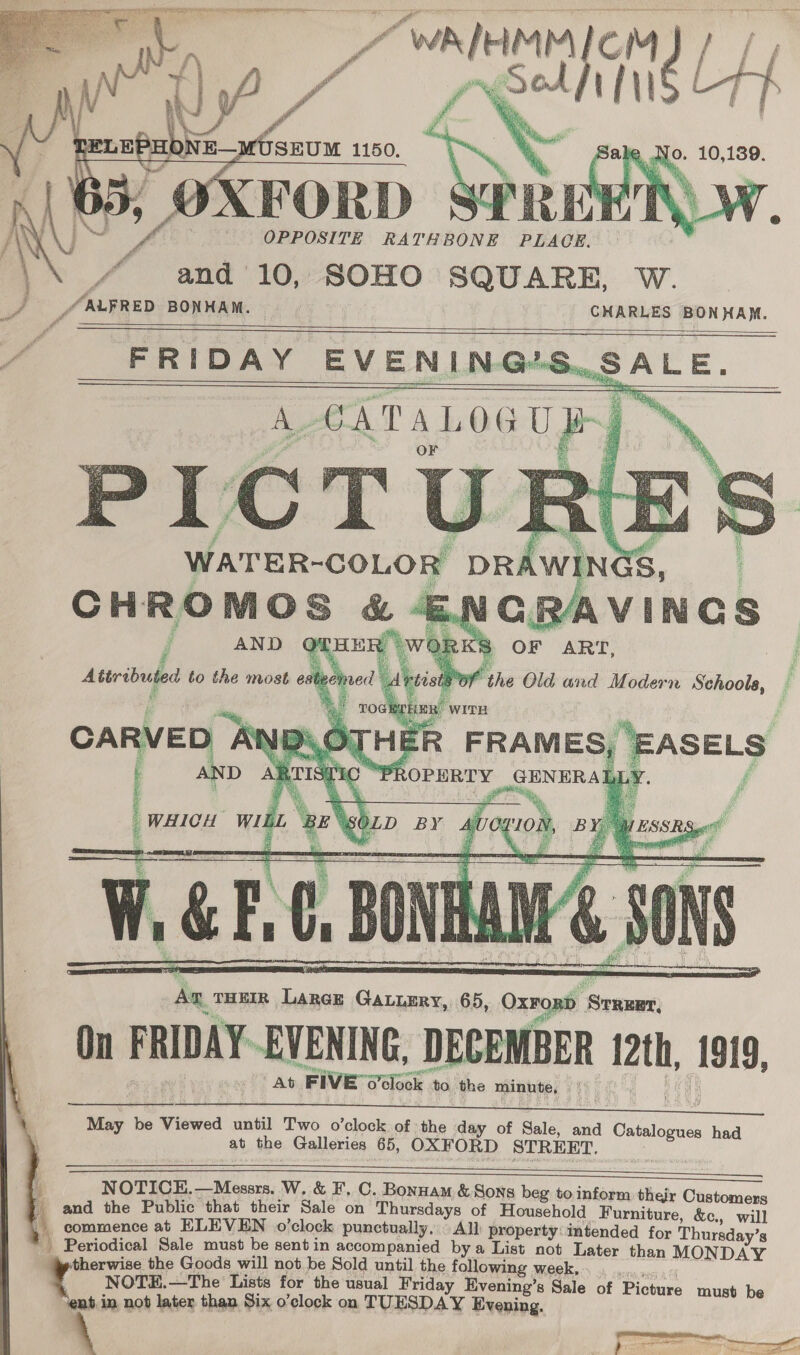 WA/HMM/CM
TELEPHONE—MUSEUM 1150. Sale No. 10,139.
65, OXFORD STREET, W.
OPPOSITE RATHBONE PLACE,
and 10, SOHO SQUARE, W.
ALFRED BONHAM. CHARLES BONHAM.
FRIDAY EVENING'S SALE.
A CATALOGUE
OF
PICTURES
WATER-COLOR DRAWINGS,
CHROMOS & ENGRAVINGS
AND OTHER WORKS OF ART,
Attributed to the most esteemed Artists of the Old and Modern Schools,
TOGETHER WITH
CARVED AND OTHER FRAMES, EASELS
AND ARTISTIC PROPERTY GENERALLY.
WHICH WILL BE SOLD BY AUCTION, BY MESSRS.
W. & F. C. BONHAM & SONS
AT THEIR LARGE GALLERY, 65, OXFORD STREET,
On FRIDAY EVENING, DECEMBER 12th, 1919,
At FIVE o'clock to the minute.
May be Viewed until Two o'clock of the day of Sale, and Catalogues had
at the Galleries 65, OXFORD STREET.
NOTICE.—Messrs. W. & F. C. BONHAM & SONS beg to inform their Customers
and the Public that their Sale on Thursdays of Household Furniture, &c., will
commence at ELEVEN o'clock punctually. All property intended for Thursday's
Periodical Sale must be sent in accompanied by a List not Later than MONDAY
otherwise the Goods will not be Sold until the following week.
NOTE.—The Lists for the usual Friday Evening's Sale of Picture must be
ent in not later than Six o'clock on TUESDAY Evening.